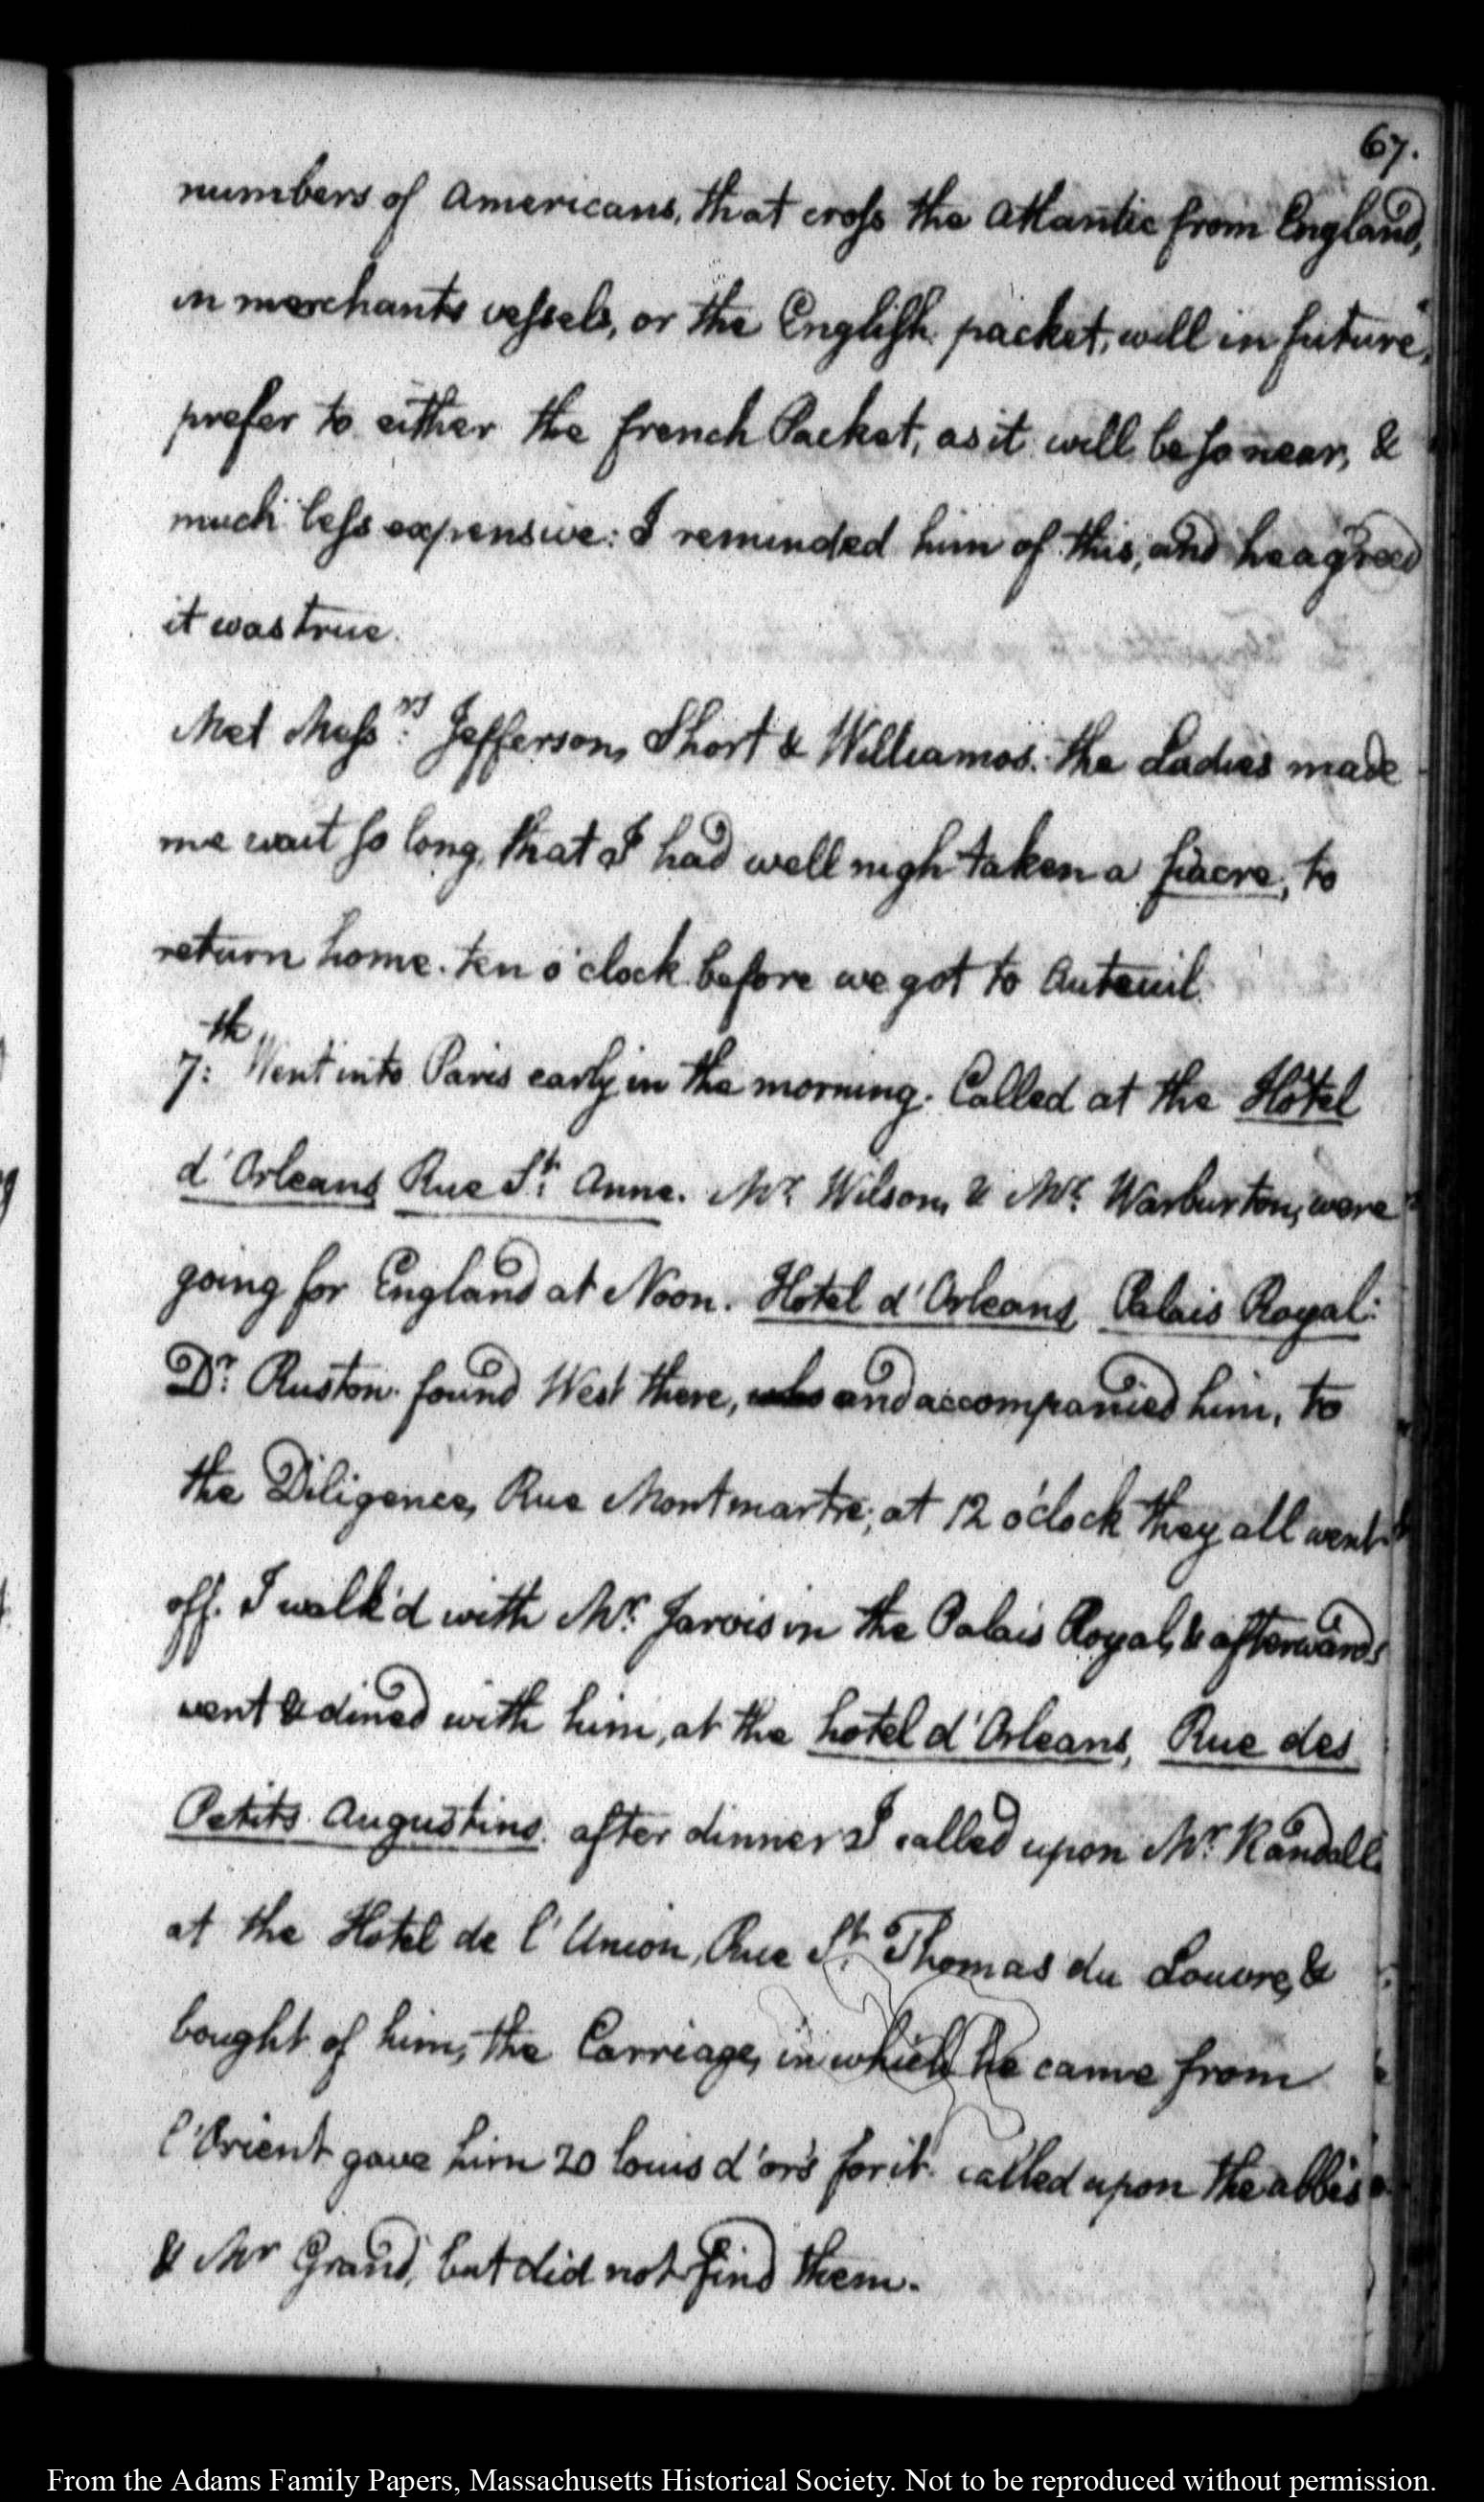 67.
numbers of Americans, that cross the Atlantic from England,
in merchants vessels, or the English packet, will in future,
prefer to either the french Packet, as it will be so near, &
much less expensive: I reminded him of this, and he agreed
it was true.
Met Messrs: Jefferson, Short & Williamos. the Ladies made
me wait so long, that I had well nigh taken a fiacre, to
return home. ten o'clock before we got to Auteuil.
7:th Went into Paris early in the morning. Called at the Hôtel
d'Orleans Rue St: Anne. Mr: Wilson, & Mr: Warburton, were
going for England at Noon. Hotel d'Orleans Palais Royal:
Dr: Ruston. found West there, who and accompanied him, to
the Diligence, Rue Montmartre; at 12 o'clock they all went
off. I walk'd with Mr: Jarvis in the Palais Royal, & afterwards
went & dined with him, at the hotel d'Orleans, Rue des
Petits Augustins. after dinner I called upon Mr: Randall
at the Hotel de l'Union, Rue St: Thomas du Louvre, &
bought of him, the Carriage, in which he came from
l'Orient gave him 20 louis d'ors for it. called upon the abbés
& Mr Grand, but did not find them.
From the Adams Family Papers, Massachusetts Historical Society. Not to be reproduced without permission.